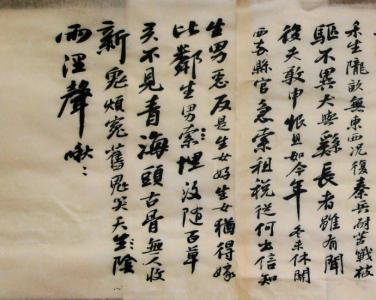 禾生隴畝無東西況復秦兵耐苦戰被
驅不異犬與雞長者雖有問
役夫敢申恨且如今年冬未休關
西卒縣官急索租稅從何出信知
生男惡反是生女好生女猶得嫁
比鄰生男索埋沒隨百草
君不見青海頭古骨無人收
新鬼煩冤舊鬼哭天陰
雨溼聲啾〻